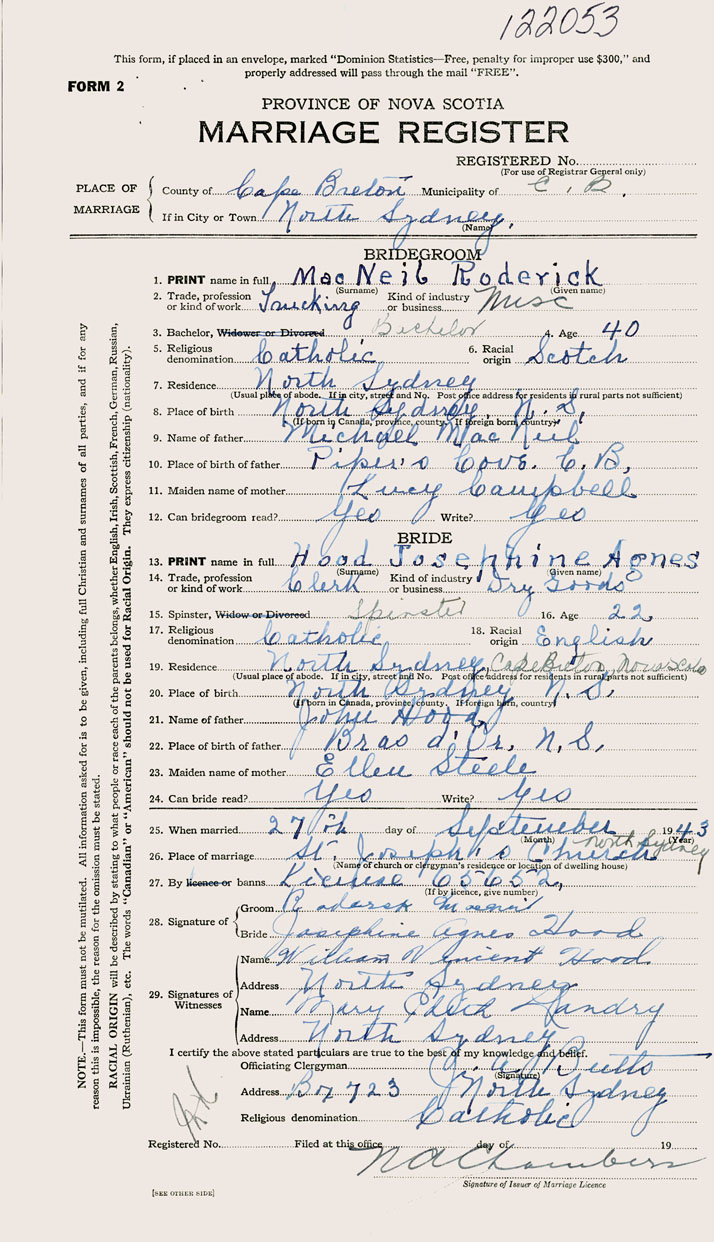 122053
This form, if placed in an envelope, marked "Dominion Statistics—Free, penalty for improper use $300," and
properly addressed will pass through the mail "FREE".
FORM 2
PROVINCE OF NOVA SCOTIA
MARRIAGE REGISTER
REGISTERED No.
(For use of Registrar General only)
PLACE OF MARRIAGE
County of Cape Breton Municipality of C. B.
If in City or Town North Sydney,
(Name)
BRIDEGROOM
1. PRINT name in full MacNeil Roderick
(Surname) (Given name)
2. Trade, profession or kind of work Trucking Kind of industry or business Misc
3. Bachelor, Widower or Divorced Bachelor 4. Age 40
5. Religious denomination Catholic 6. Racial origin Scotch
7. Residence North Sydney
(Usual place of abode. If in city, street and No. Post office address for residents in rural parts not sufficient)
8. Place of birth North Sydney, N. S.
(If born in Canada, province, county. If foreign born, country)
9. Name of father Michael MacNeil
10. Place of birth of father Piper's Cove. C. B,
11. Maiden name of mother Lucy Campbell
12. Can bridegroom read? Yes Write? Yes
BRIDE
13. PRINT name in full Hood Josephine Agnes
(Surname) (Given name)
14. Trade, profession or kind of work Clerk Kind of industry or business Dry Goods
15. Spinster, Widow or Divorced Spinster 16. Age 22
17. Religious denomination Catholic 18. Racial origin English
19. Residence North Sydney, Cape Breton, Nova Scotia
(Usual place of abode. If in city, street and No. Post office address for residents in rural parts not sufficient)
20. Place of birth North Sydney N. S.
(If born in Canada, province, county. If foreign born, country)
21. Name of father John Hood
22. Place of birth of father Bras d'Or, N. S,
23. Maiden name of mother Ellen Steele
24. Can bride read? Yes Write? Yes
25. When married 27th day of September 1943
(Month) (Year)
26. Place of marriage St. Joseph's Church North Sydney
(Name of church or clergyman's residence or location of dwelling house)
27. By licence or banns License 65652,
(If by licence, give number)
28. Signature of
Groom
Bride Josephine Agnes Hood
29. Signatures of Witnesses
Name William Vincent Hood
Address North Sydney
Name Mary Edith Landry
Address North Sydney
I certify the above stated particulars are true to the best of my knowledge and belief.
Officiating Clergyman Butts
(Signature)
Address Box 723 North Sydney
Religious denomination Catholic
Registered No. Filed at this office day of 19
N A Chambers
Signature of Issuer of Marriage Licence
[SEE OTHER SIDE]
NOTE.—This form must not be mutilated. All information asked for is to be given, including full Christian and surnames of all parties, and if for any
reason this is impossible, the reason for the omission must be stated.
RACIAL ORIGIN will be described by stating to what people or race each of the parents belongs, whether English, Irish, Scottish, French, German, Russian,
Ukrainian (Ruthenian), etc. The words "Canadian" or "American" should not be used for Racial Origin. They express citizenship (nationality).